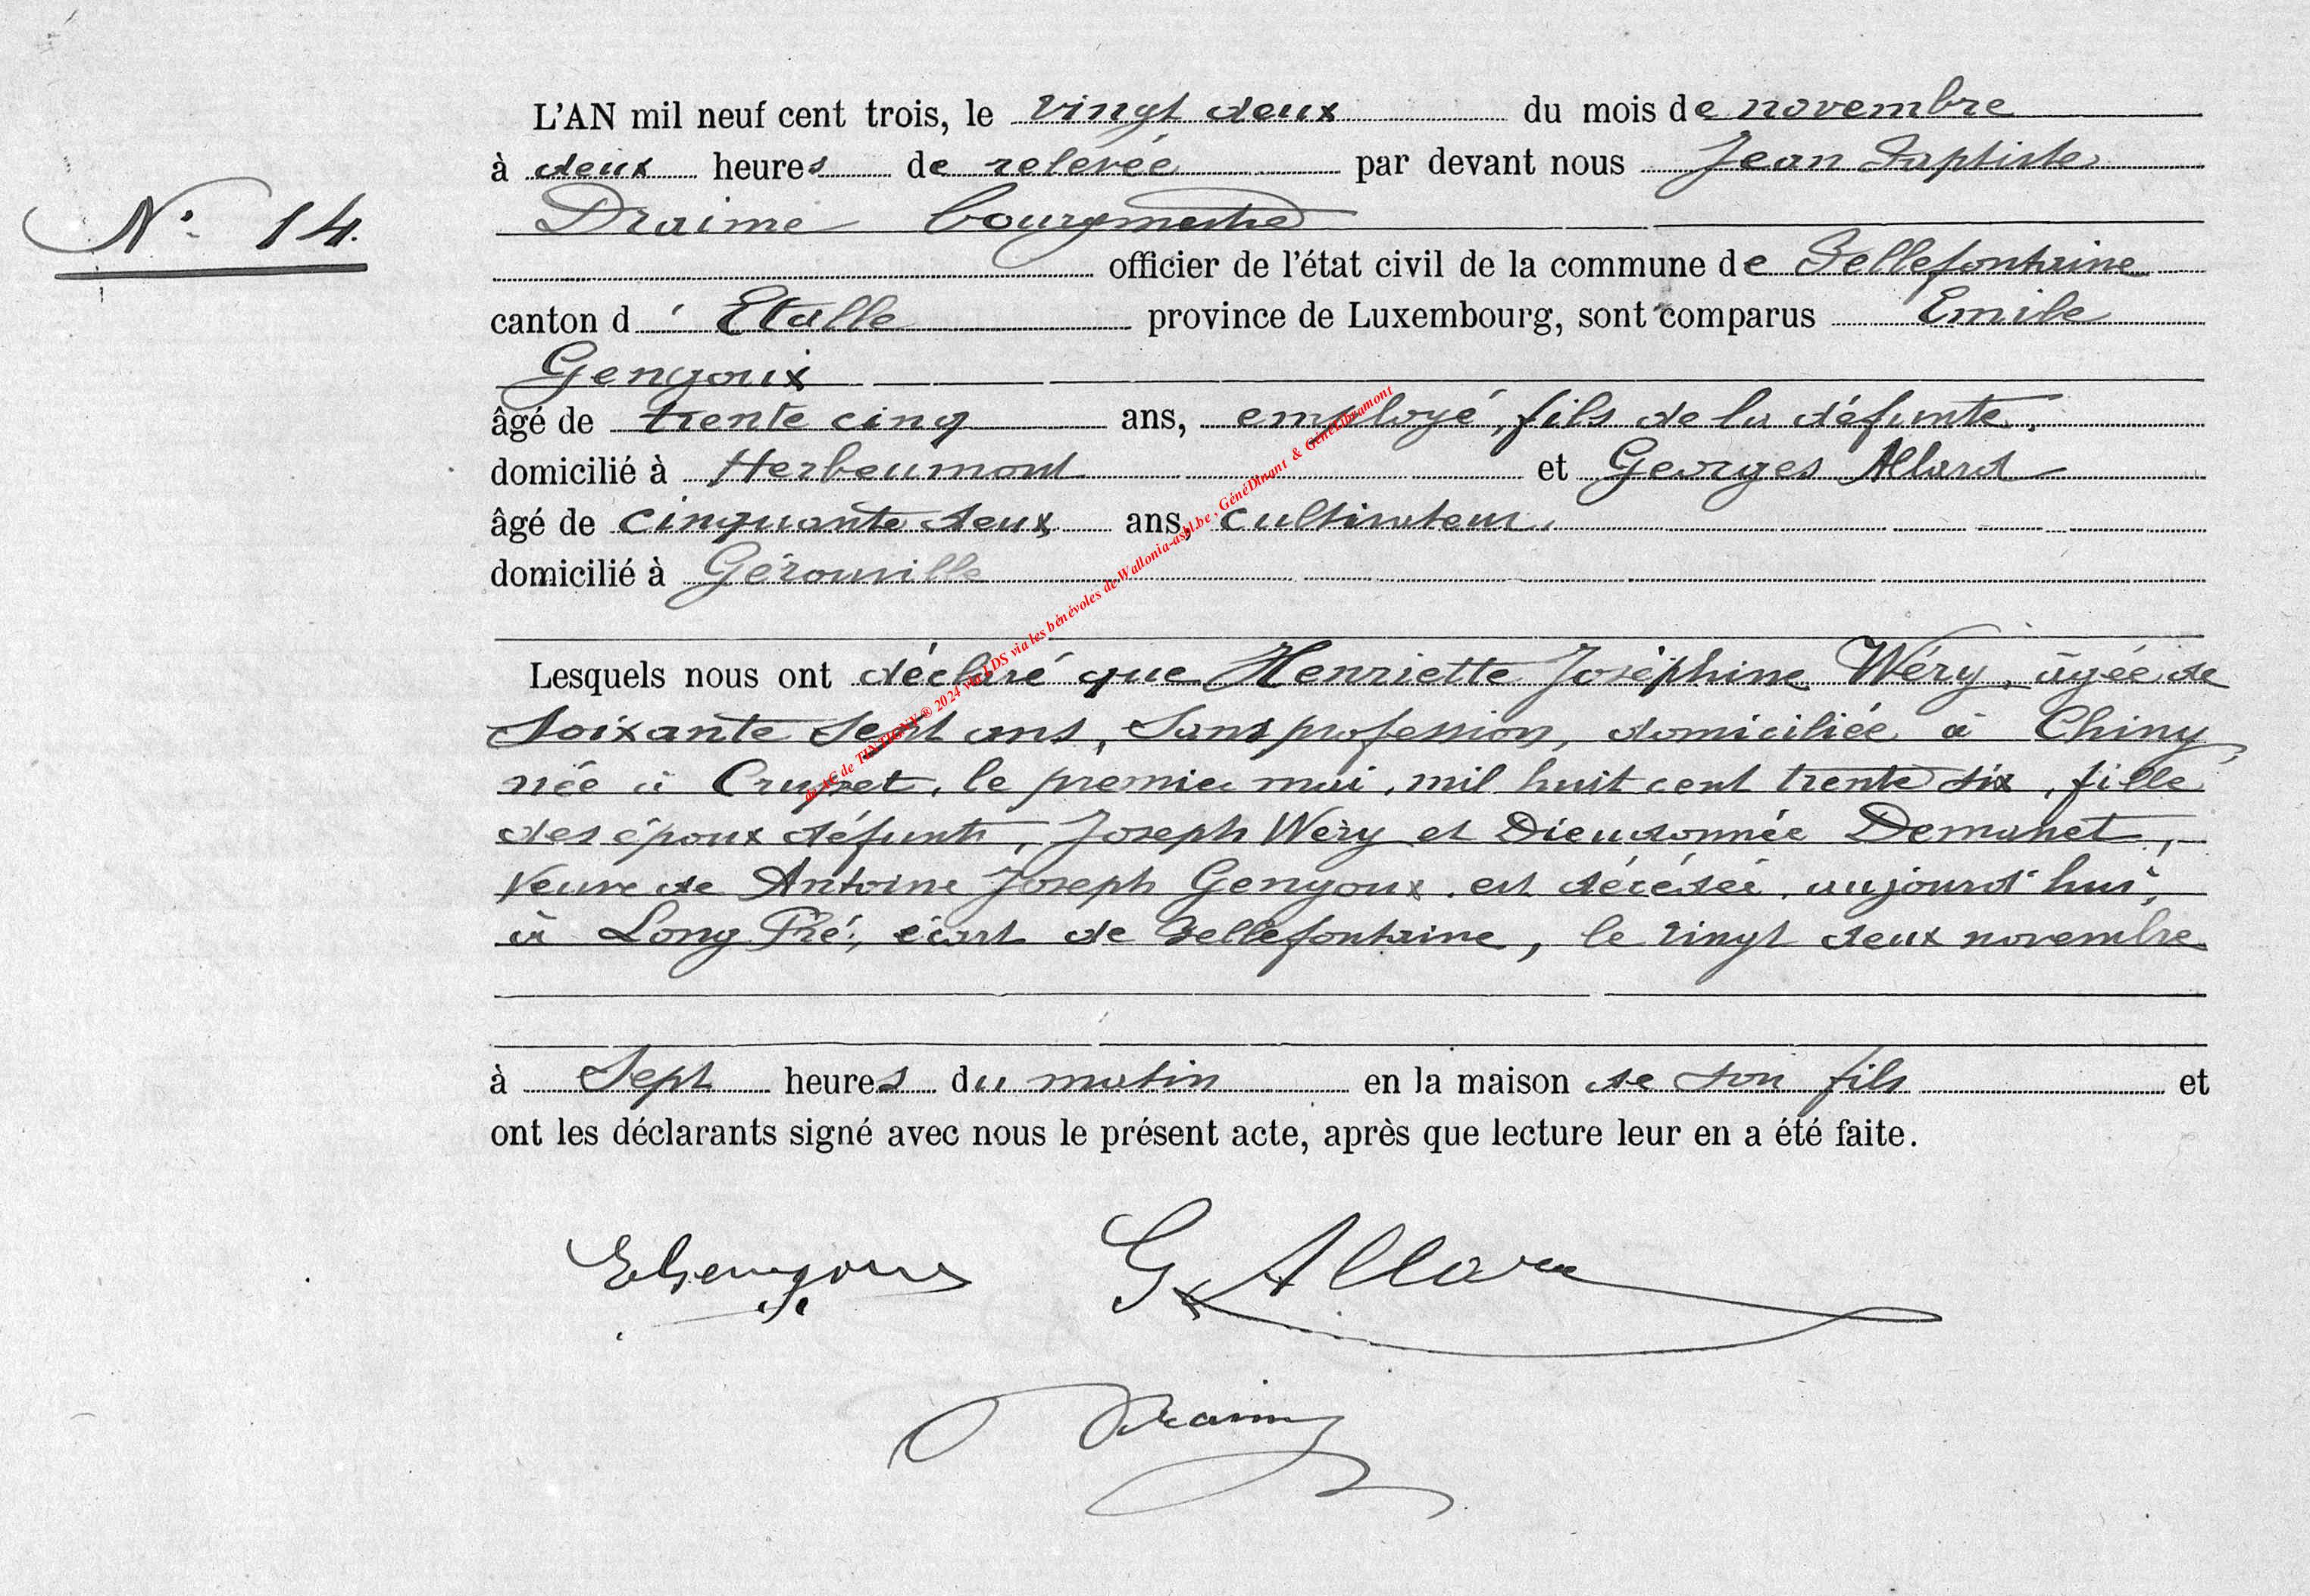 L'AN mil neuf cent trois, le vingt deux du mois de novembre
à deux heures de relevée par devant nous Jean Baptiste
N° 14.
Draime bourgmestre
officier de l'état civil de la commune de Bellefontaine
canton d' Etalle province de Luxembourg, sont comparus Emile
Gengoux
âgé de trente cinq ans, employé, fils de la défunte,
domicilié à Herbeumont et Georges Allard
âgé de cinquante deux ans, cultivateur,
domicilié à Gérouville
Lesquels nous ont déclaré que Henriette Joséphine Wéry, âgée de
soixante sept ans, sans profession, domiciliée à Chiny,
née à Crupet, le premier mai, mil huit cent trente six, fille
des époux défunts, Joseph Wéry et Dieudonnée Demanet,
veuve de Antoine Joseph Gengoux, est décédée, aujourd'hui,
à Long Pré, écart de Bellefontaine, le vingt deux novembre
à sept heures du matin en la maison de son fils et
ont les déclarants signé avec nous le présent acte, après que lecture leur en a été faite.
EGengoux G Allard
Draime
du EC de TINTIGNY ® 2024 via LDS via les bénévoles de Wallonia-asbl.be, GénéDinant & GénéLibramont